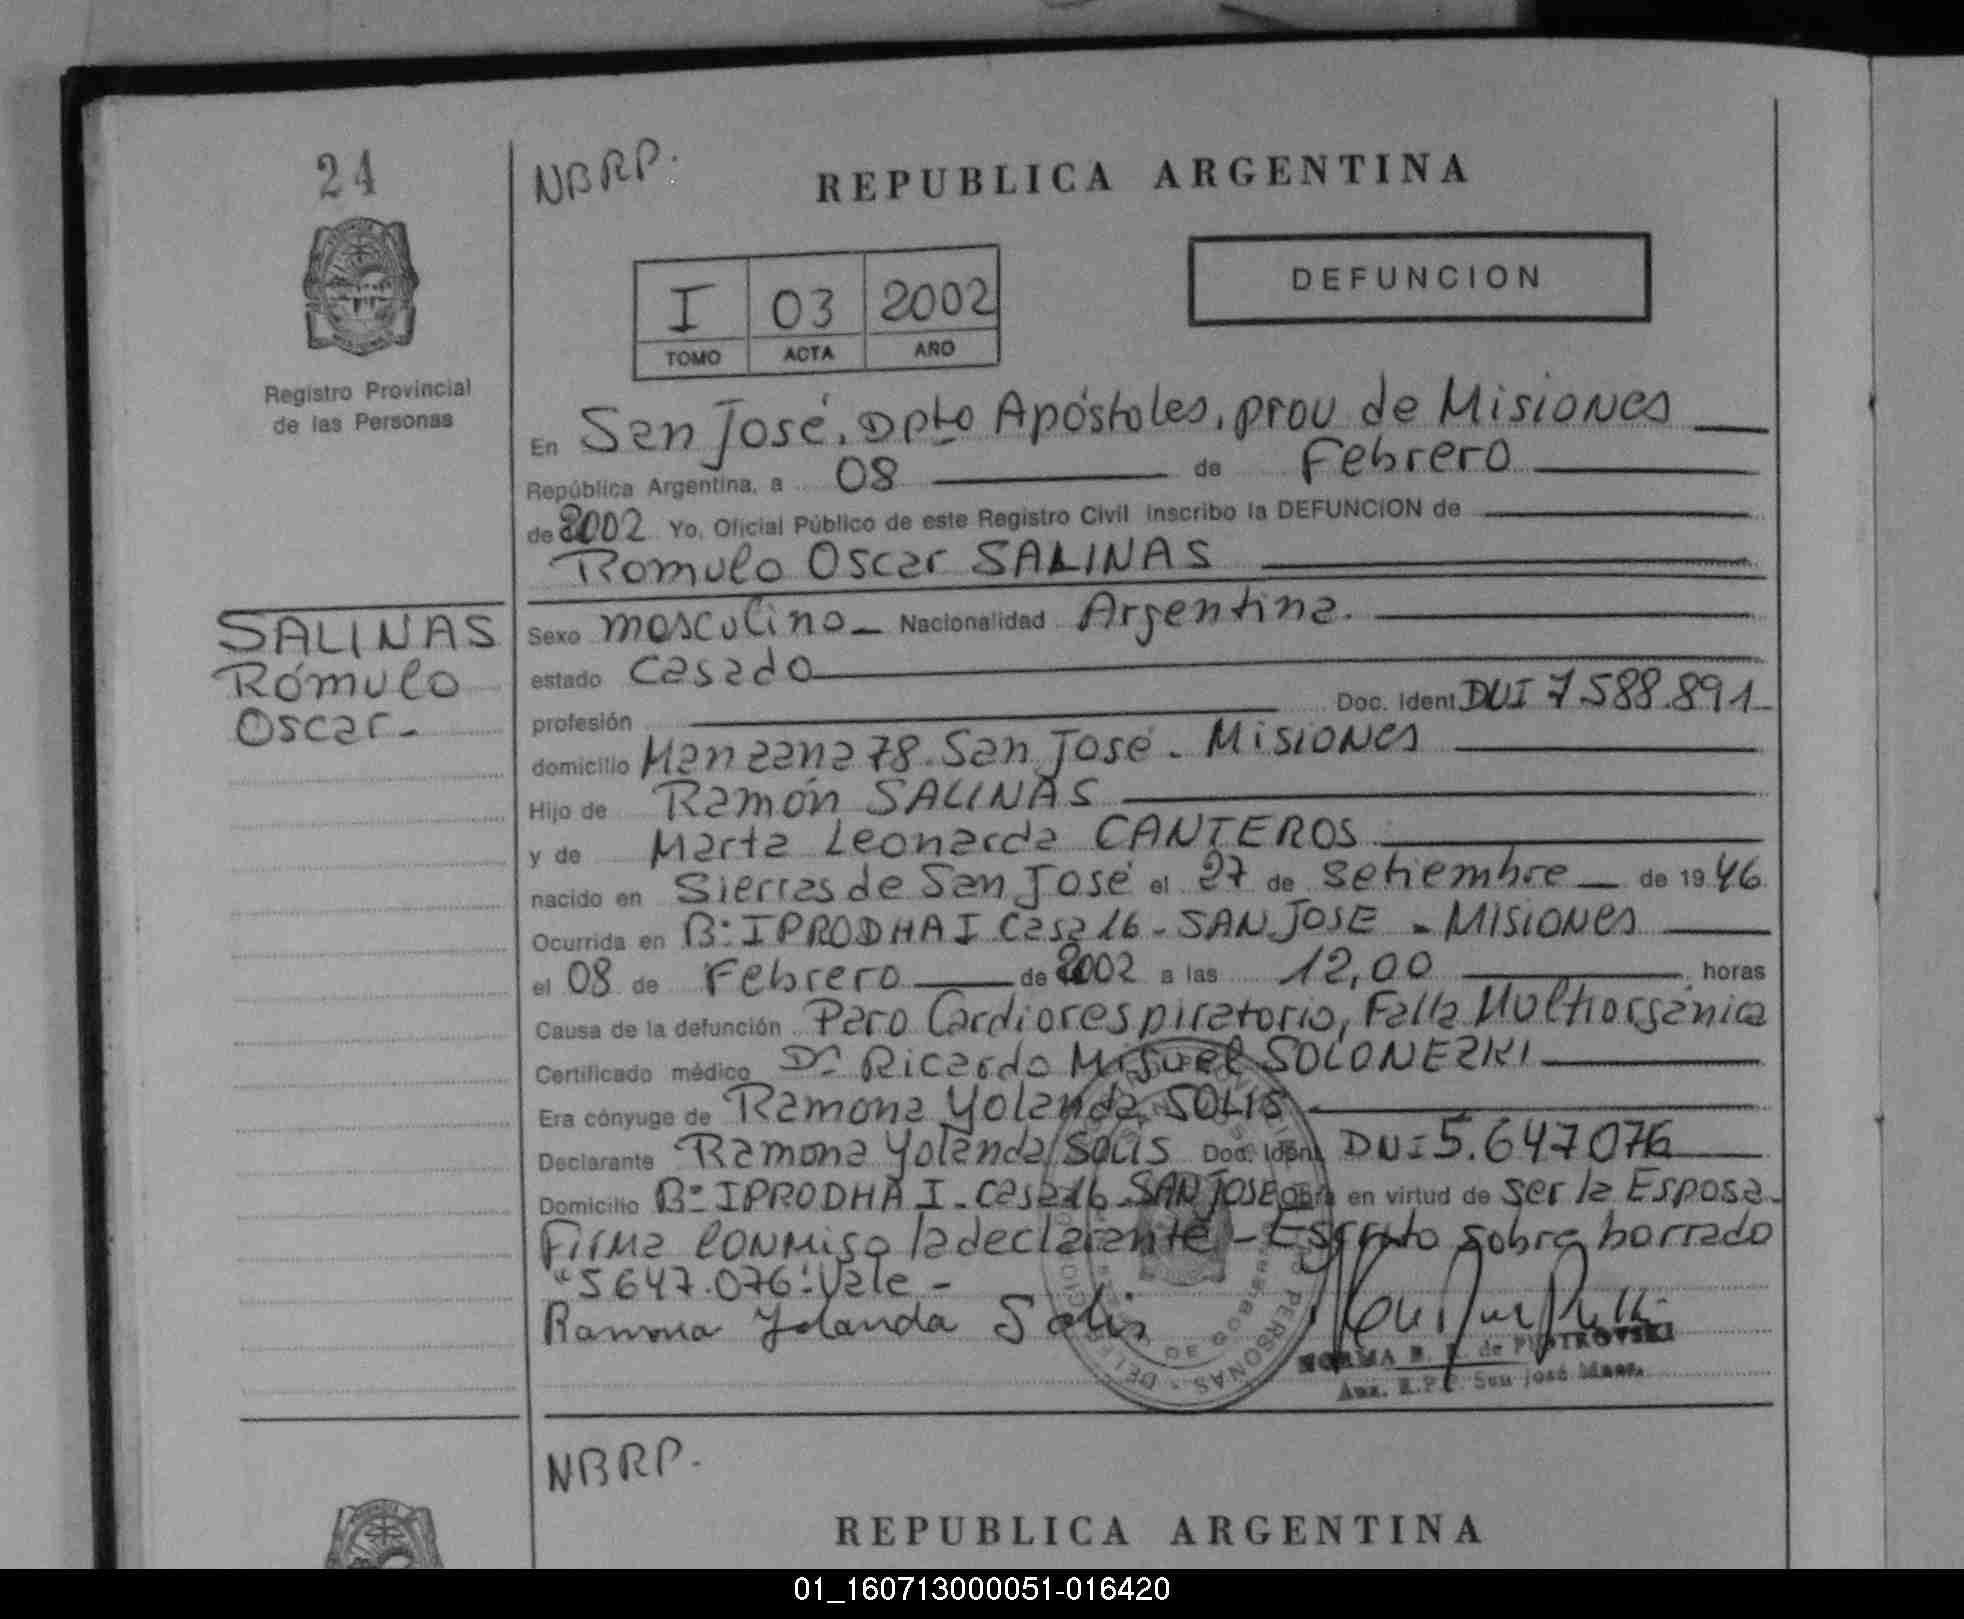 24
NBRP.
REPUBLICA ARGENTINA
DEFUNCION
I 03 2002
TOMO ACTA AÑO
Registro Provincial
de las Personas
En San José, Dpto Apóstoles, prov de Misiones
República Argentina, a 08 de Febrero
de 2002 Yo, Oficial Público de este Registro Civil inscribo la DEFUNCION de
Romulo Oscar SALINAS
SALINAS
Rómulo
Oscar.-
Sexo masculino - Nacionalidad Argentina.
estado casado
profesión Doc. Ident DUI 7.588.891
domicilio Manzana 78. San José - Misiones
Hijo de Ramón SALINAS
y de Marta Leonarda CANTEROS
nacido en Sierras de San José el 27 de setiembre de 1946
Ocurrida en B: IPRODHA I Casa 16 - SAN JOSE - MISIONES
el 08 de Febrero de 2002 a las 12,00 horas
Causa de la defunción Paro Cardiorespiratorio, Falla Multiorgánica
Certificado médico Dr. Ricardo Miguel SOLONEZKI
Era cónyuge de Ramona Yolanda SOLIS
Declarante Ramona Yolanda Solis Doc. Ident. DNI 5.647076
Domicilio B: IPRODHA I - Casa 16 - SAN JOSE obra en virtud de ser la Esposa.
Firma conmigo la declarante - Escrito sobre borrado
"5647.076": Vale -
Ramona Yolanda Solis
NORMA de PIOTROVSKI
Aux. R.P.P. San José Mnes.
NBRP.
REPUBLICA ARGENTINA
01_160713000051-016420